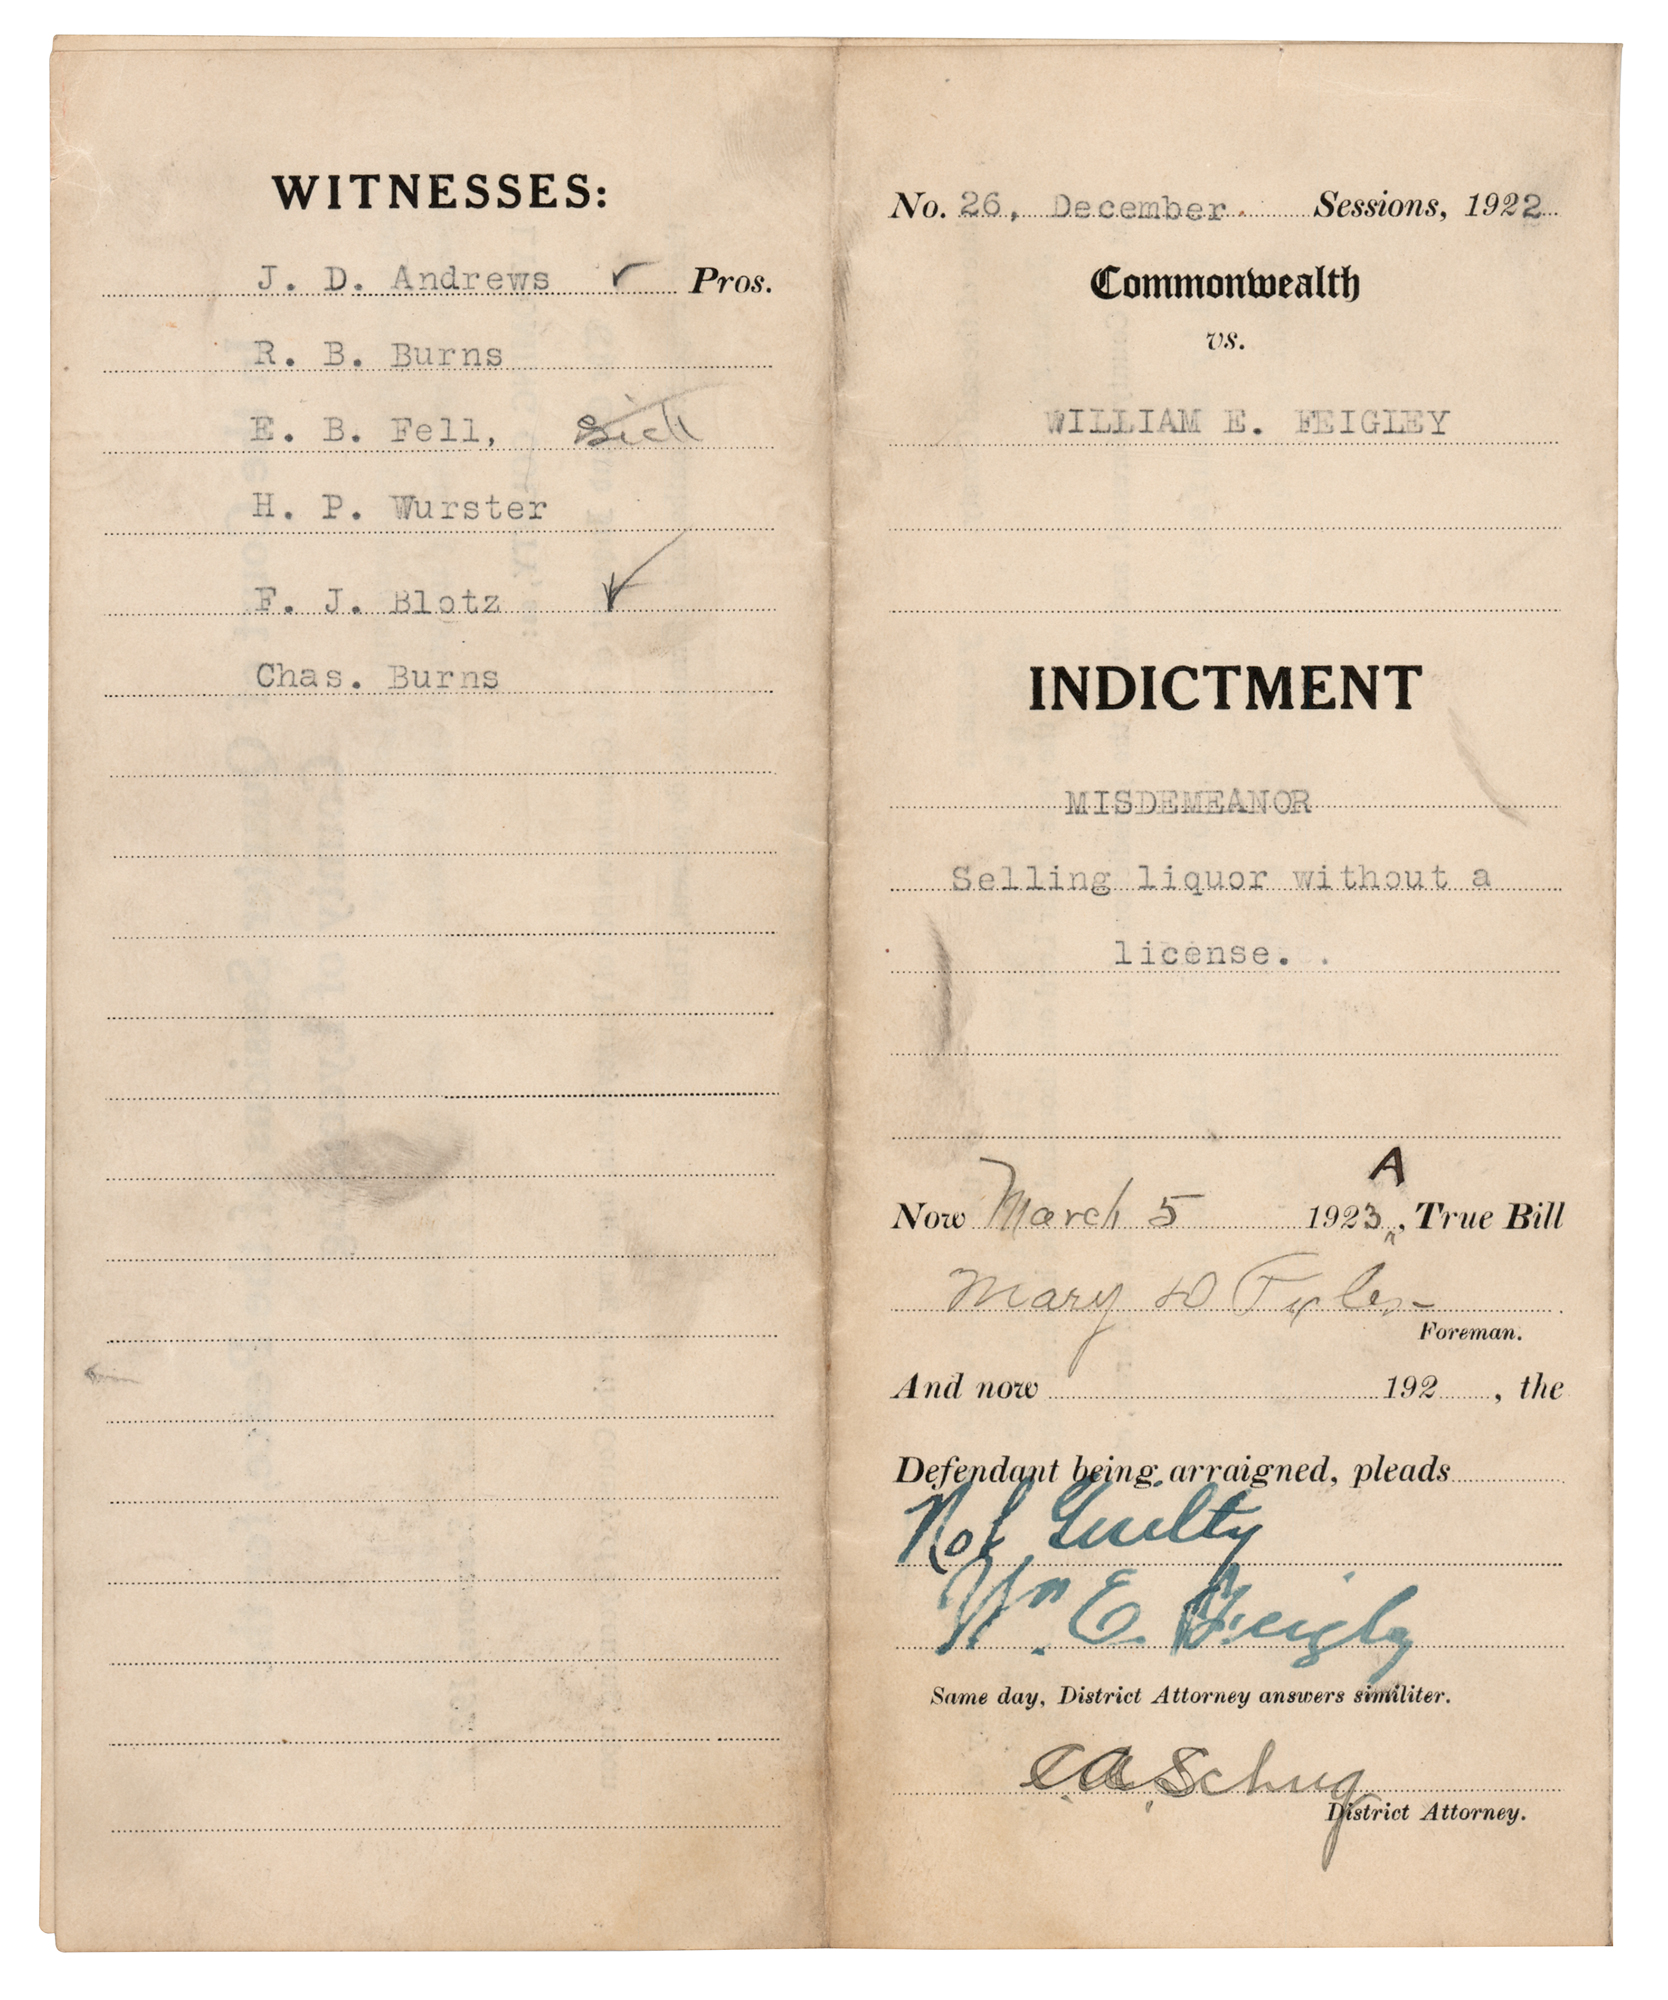 WITNESSES:
J. D. Andrews Pros.
R. B. Burns
E. B. Fell, Sick
H. P. Wurster
F. J. Blotz
Chas. Burns
No. 26, December Sessions, 1922
Commonwealth
vs.
WILLIAM E. FEIGLEY
INDICTMENT
MISDEMEANOR
Selling liquor without a
license.
A
Now March 5 1923, True Bill
Mary D
Foreman.
And now 192 , the
Defendant being arraigned, pleads
Not Guilty
Wm. E. Feigley
Same day, District Attorney answers similiter.
C. A. Schug
District Attorney.